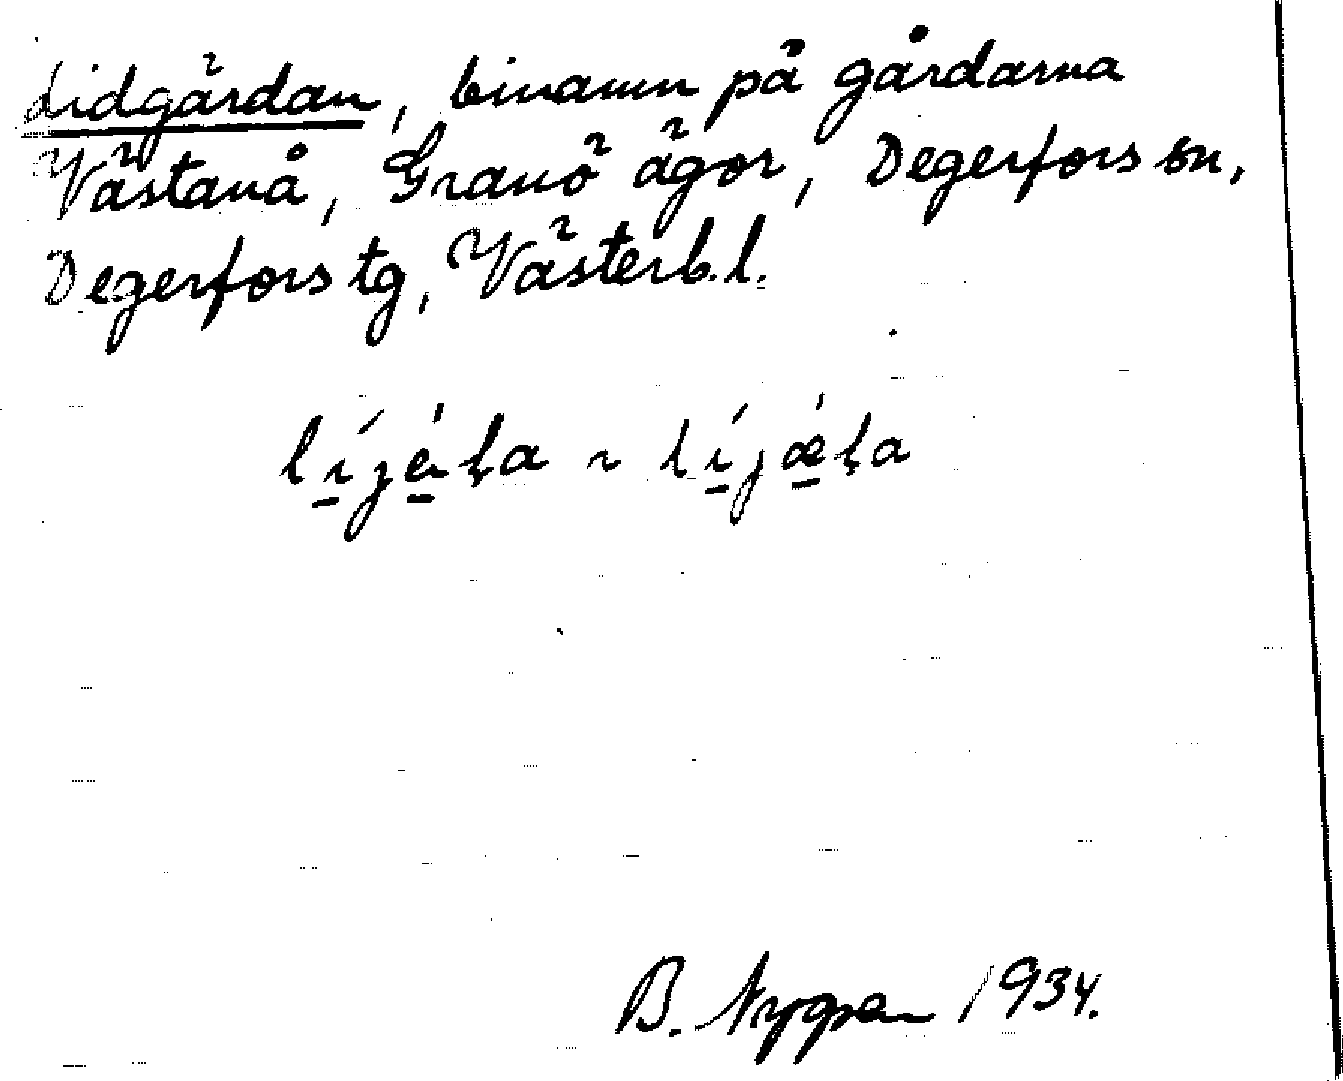 Lidgärdan, binamn på gårdarna
Västanå, Granö ägor, Degerfors sn,
Degerfors tg, Västerb. l.
B. Nygren 1934.